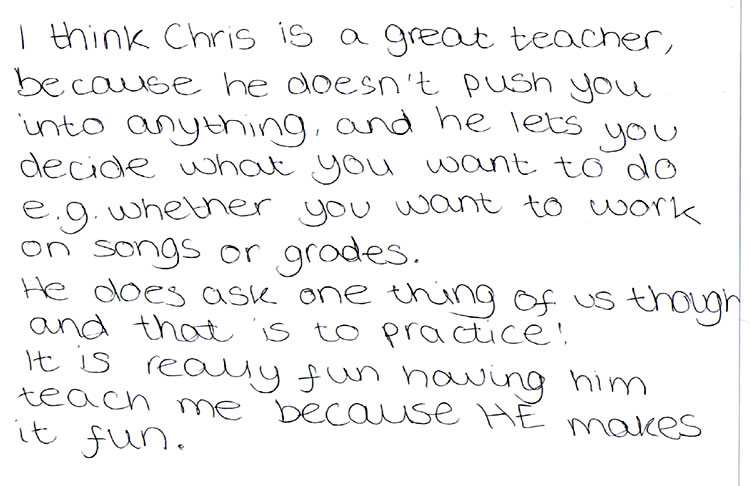 I think Chris is a great teacher,
because he doesn't push you
into anything, and he lets you
decide what you want to do
e.g. whether you want to work
on songs or grades.
He does ask one thing of us though
and that is to practice!
It is really fun having him
teach me because HE makes
it fun.